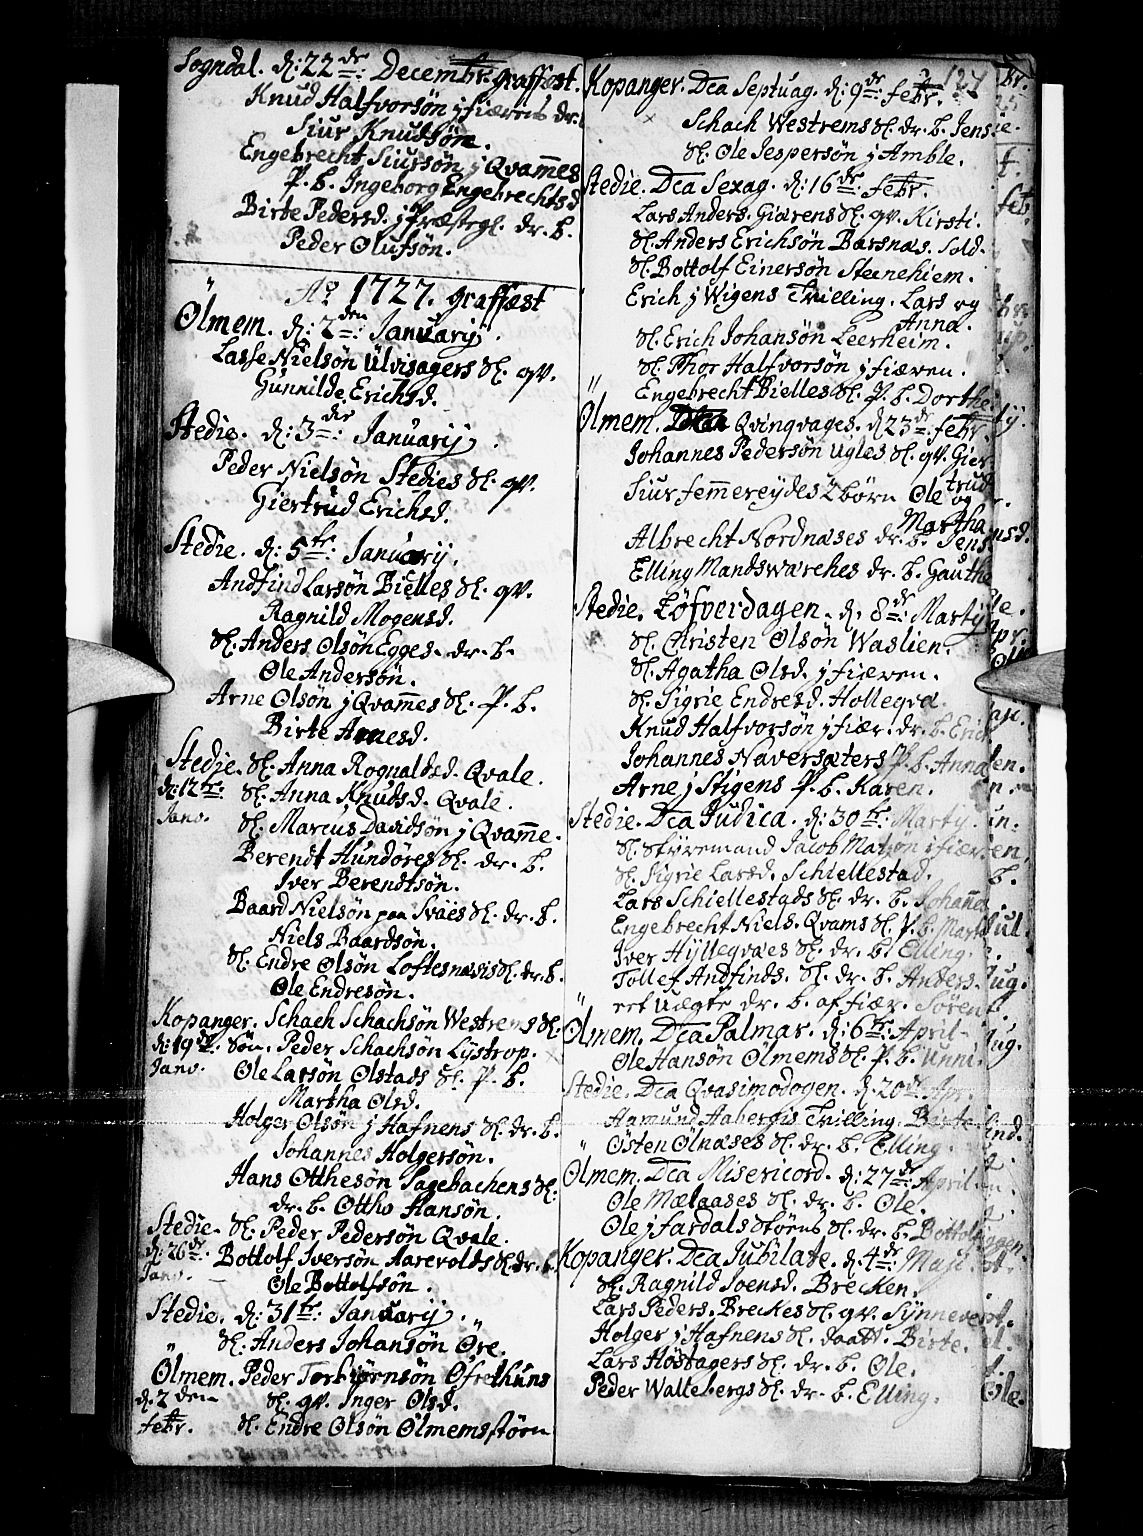 Sogndal. d: 22de: Decembr. graffæst.
Knud Halfvorsön j fiærens dr.
Siur Knudsön.
Engebrecht Siursön j Qvam̅es
P. b. Ingeborg Engebrechtsd
Birte Pedersd. j Præstegl. dr. b.
Peder Olufsön.
Ao 1727. graffæst
Ölmem. d: 2den: Januarij.
Lasse Nielsön Ulvisagers Sl. qv.
Gunnilde Erichsd.
Stedie. d: 3die: Januarij.
Peder Nielsön Stedies Sl. qv.
Giertrud Erichsd.
Stedie. d: 5te: Januarij.
Andfind Larsön Bielles Sl. qv.
Ragnild Mogensd.
Sl. Anders Olsön Egges. dr. b.
Ole Andersön.
Arne Olsön j Qvam̅es Sl. P. b.
Birte Arnesd.
Stedie. Sl. Anna Rognaldsd. Qvale.
d: 12te: Sl. Anna Knudsd. Qvale.
Janv. Sl. Marcus Davidsön j Qvam̅e.
Berendt Hundöres Sl. dr. b.
Iver Berendtsön.
Baard Nielsön paa Svaes Sl. dr. b.
Niels Baardsön.
Sl. Endre Olsön Loftesnæsis Sl. dr. b.
Ole Endresön.
Kopanger. Schach Schachsön Westrems Sl.
d: 19de: Sön. Peder Schachsön Lystrop.
Janv. Ole Larsön Olstads Sl. P. b.
Martha Olsd.
Holger Olsön j Hafnens Sl. dr. b.
Johannes Holgersön.
Hans Otthesön Sagebachens Sl.
dr. b. Otthe Hansön.
Stedie. Sl. Peder Pedersön Qvale.
d: 26de: Bottolf Iversön Aarevolds Sl. dr. b.
Janv. Ole Bottolfsön.
Stedie. d: 31te: Januarij.
Sl. Anders Johansön Öre.
Ölmem. Peder Torbiörnsön Öfrethuns
d. 2den Sl. qv. Inger Olsd.
febr. Sl. Endre Olsön Ölmemsstörn
Kopanger. Dca Septuag. d: 9de: febr. 127
Schach Westrems Sl. dr. b. Jens
Sl. Ole Jespersön j Amble.
Stedie. Dca Sexag. d: 16de: febr.
Lars Anders. Giærens Sl. qv. Kirsti.
Sl. Anders Erichsön Barsnæs. Sold.
Sl. Bottolf Einersön Steenehiem.
Erich j Wigens Tvilling. Lars og
Anna.
Sl. Erich Johansön Leerheim.
Sl. Thor Halfvorsön j fiæren.
Engebrecht Bielles Sl. P. b. Dorthe
Ölmem. Qvinqvages. d 23de febr.
Johannes Pedersön Ugles Sl. qv. Gier
trud
Siur fem̅ereydes 2 börn Ole og
Martha
Albrecht Nordnæses dr. b. Jens
Elling Mandswærches dr. b. Gauthe
Stedie. Löfverdagen. d. 8de: Martij
Sl. Christen Olsön Waslien.
Sl. Agatha Olsd. j fiæren.
Sl. Sigrie Endresd. Hollegvæ.
Knud Halfvorsön j fiær. dr. b. Erich
Johannes Naversæters P. b. Anna
Arne j Stigens P. b. Karen.
Stedie. Dca Judica. d: 30te: Martij.
Sl. Styremand Jacob Matzön j fiær
Sl. Sigrie Larsd. Schiellestad.
Lars Schiellestads Sl. dr. b. Johan̅es
Engebrecht Niels. Qvams Sl. P. b. Marte
Iver Hyllegvaes Sl. dr. b. Elling.
Tollef Andfinds. Sl. dr. b. Anders.
eet uægte dr. b. af fiær. Sören
Ölmem. Dca Palmar. d: 6te: April
Ole Hansön Ölmems Sl. P. b. Unni.
Stedie. Dca Qvasimodogen. d. 20de Apr.
Aamund Tvilling. Birte
Östen Ölnæses Sl. dr. b. Elling.
Ölmem. Dca Misericord. d: 27de: April
Ole Mælaases Sl. dr. b. Ole.
Ole j fardals Störens Sl. dr. b. Bottolf
Kopanger. Dca Jubilate. d: 4de: Maji.
Sl. Ragnild Joensd. Brecken.
Lars Peders. Breckes Sl. qv. Synneve
Holger j Hafnens Sl. daatt. Birte.
Lars Höstagers Sl. dr. b. Ole.
Peder Wallebergs Sl. dr. b. Elling.